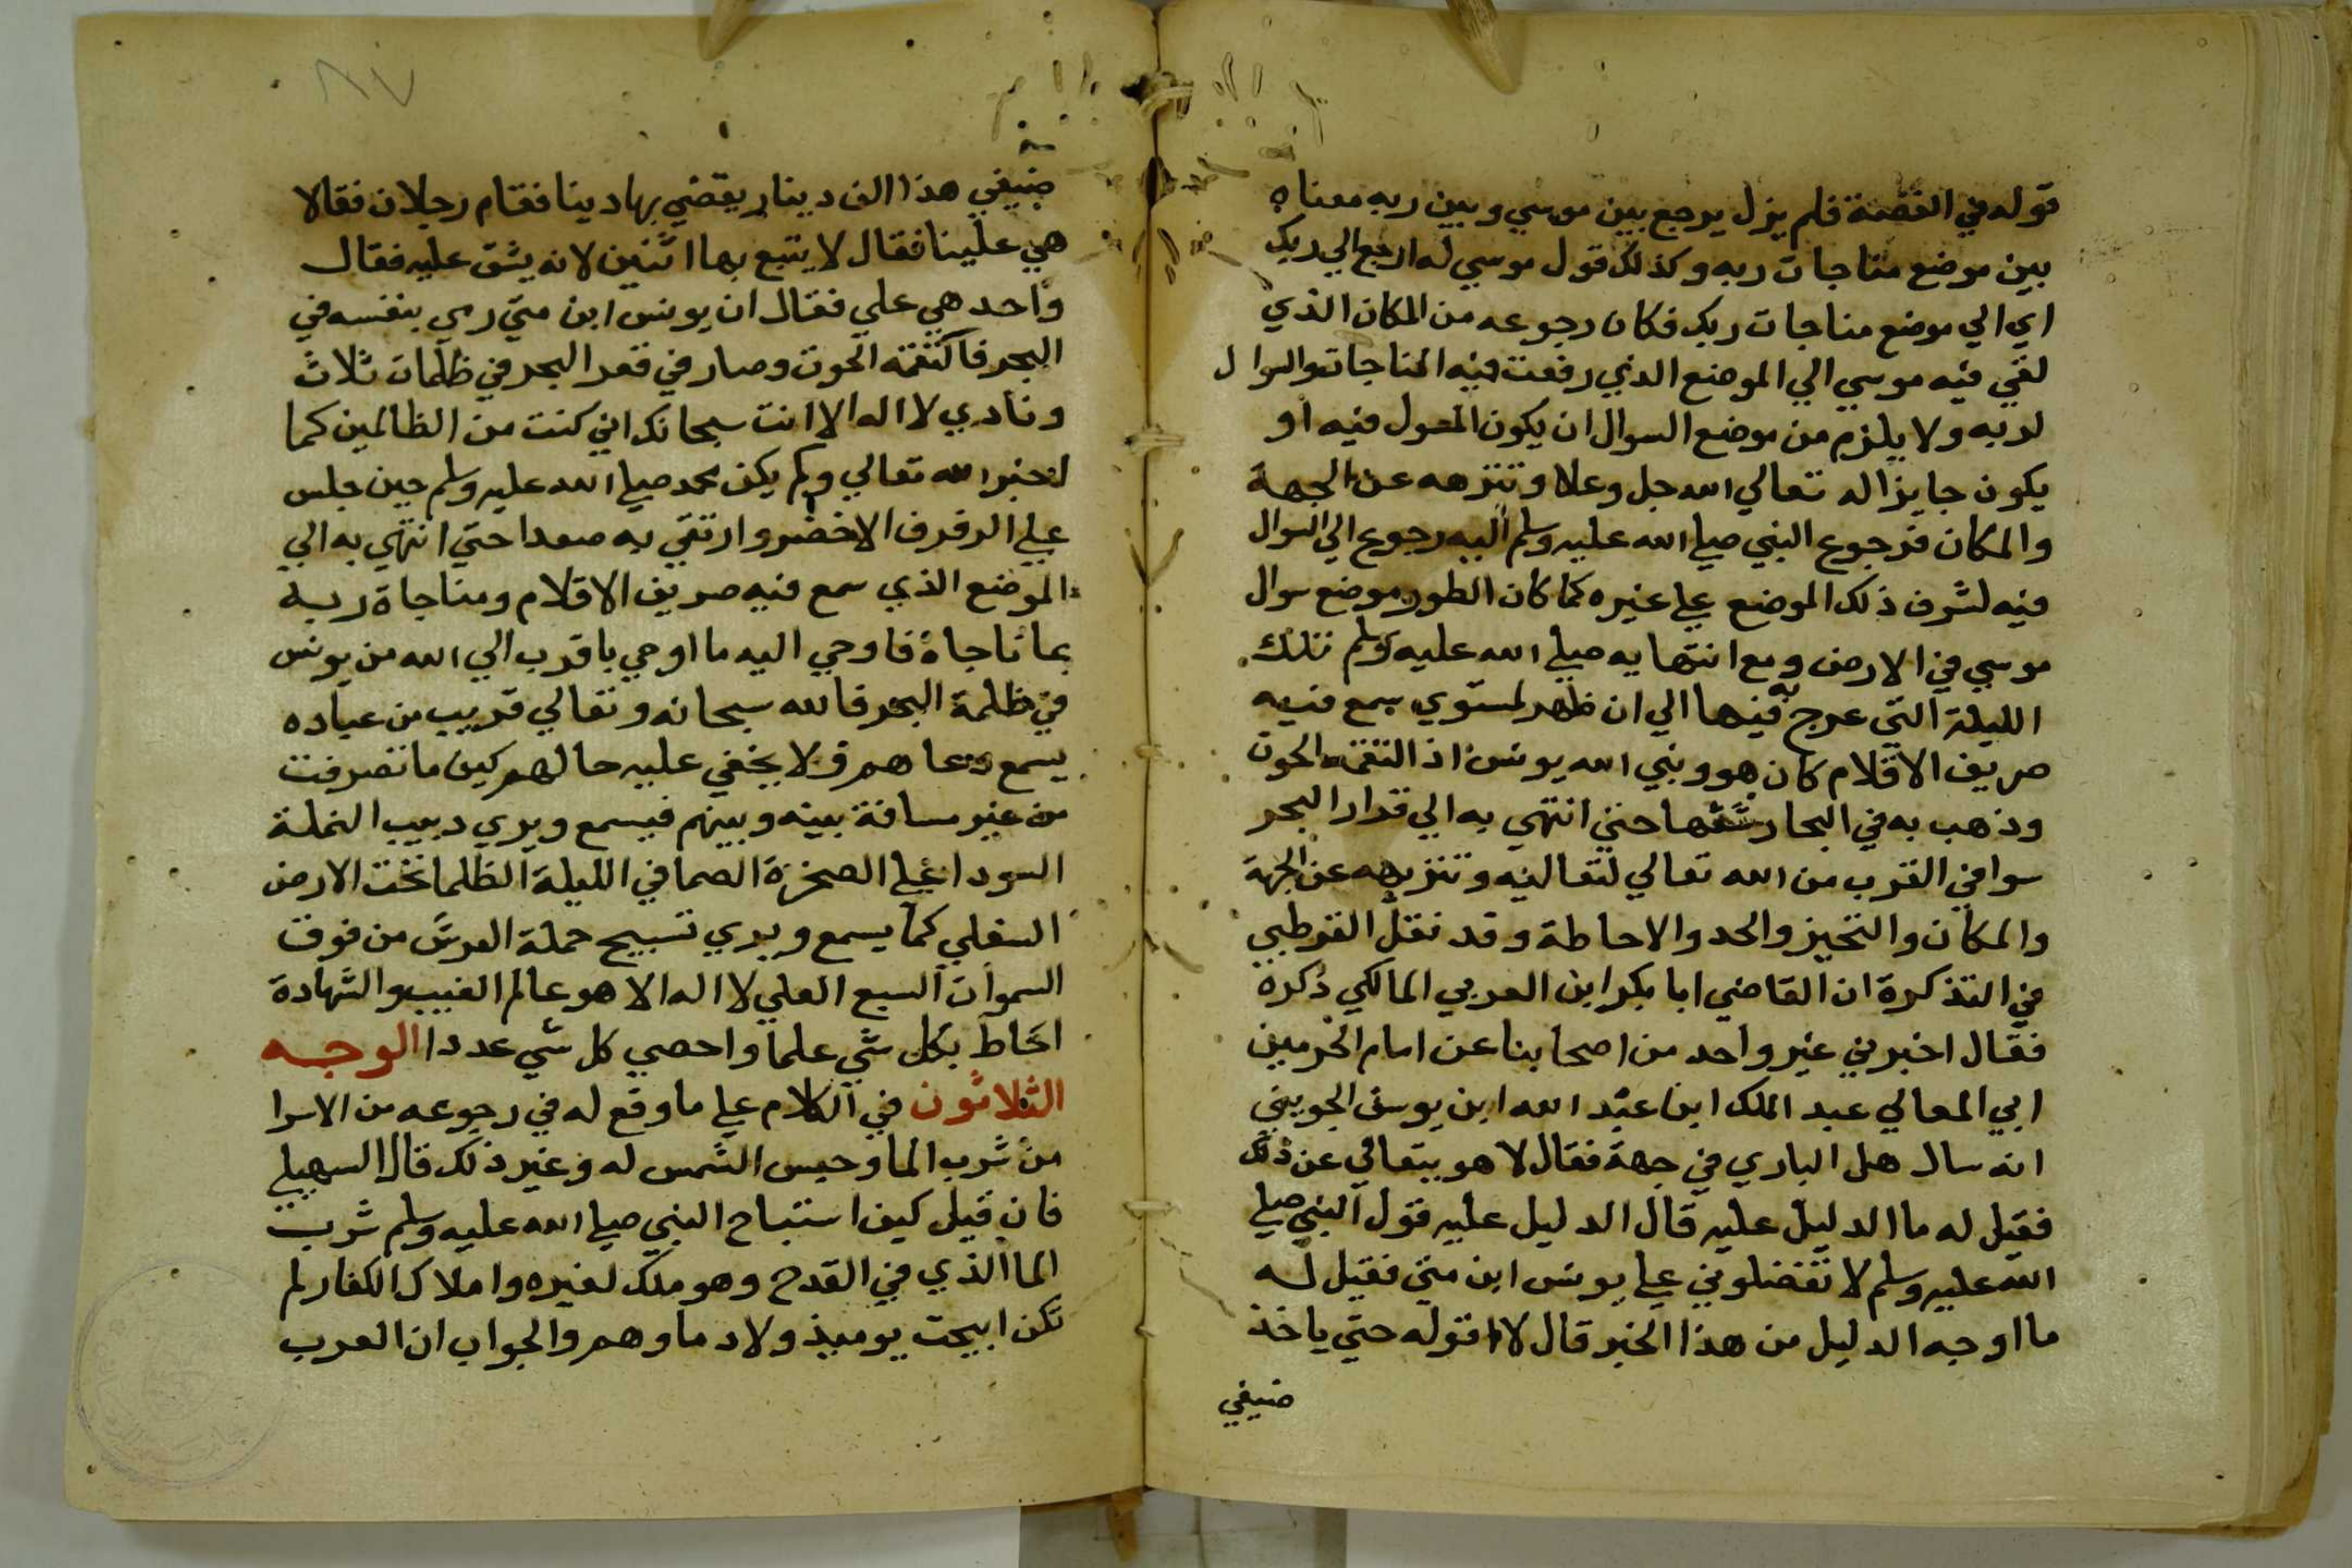 قوله في القصة فلم يزل يرجع بين موسي وبين ربه معناه
بين موضع مناجات ربه وكذلك قول موسي له ارجع الي ربك
اي الي موضع مناجات ربك فكان رجوعه من المكان الذي
لقي فيه موسي الي الموضع الذي رفعت فيه المناجات والسوال
لربه ولا يلزم من موضع السوال ان يكون المسول فيه او
يكون جايزا له تعالي الله جل وعلا وتنزهه عن الجهة
والمكان فرجوع النبي صلي الله عليه وسلم اليه رجوع الي السوال
فيه لشرف ذلك الموضع علي غيره كما كان الطور موضع سوال
موسي في الارض ومع انتهايه صلي الله عليه وسلم تلك
الليلة التي عرج به فيها الي ان ظهر لمستوي سمع فيه
صريف الاقلام كان هو ونبي الله يونس اذ التقمه الحوت
وذهب به في البحار يشقها حتي انتهي به الي قرار البحر
سوا في القرب من الله تعالي لتعاليه وتنزيهه عن الجهة
والمكان والتحيز والحد والاحاطة وقد نقل القرطبي
في التذكرة ان القاضي ابا بكر ابن العربي المالكي ذكره
فقال اخبرني غير واحد من اصحابنا عن امام الحرمين
ابي المعالي عبد الملك ابن عبد الله ابن يوسف الجويني
انه سال هل الباري في جهة فقال لا هو يتعالي عن ذلك
فقيل له ما الدليل عليه قال الدليل عليه قول النبي صلي
الله عليه وسلم لا تفضلوني علي يونس ابن متي فقيل له
ما اوجه الدليل من هذا الخبر قال لا اقوله حتي ياخذ
ضيفي
٨٧
ضيفي هذا الف دينار يقضي بها دينا فقام رجلان فقالا
هي علينا فقال لا يتبع بها اثنين لانه يشق عليه فقال
واحد هي علي فقال ان يونس ابن متي رمي بنفسه في
البحر فالتقمه الحوت وصار في قعر البحر في ظلمات ثلاث
ونادي لا اله الا انت سبحانك اني كنت من الظالمين كما
اخبر الله تعالي ولم يكن محمد صلي الله عليه وسلم حين جلس
علي الرفرف الاخضر وارتقي به صعدا حتي انتهي به الي
الموضع الذي سمع فيه صريف الاقلام ومناجاة ربه
بما ناجاه فاوحي اليه ما اوحي باقرب الي الله من يونس
في ظلمة البحر فالله سبحانه وتعالي قريب من عباده
يسمع دعاهم ولا يخفي عليه حالهم كيف ما تصرفت
من غير مسافة بينه وبينهم فيسمع ويري دبيب النملة
السودا علي الصخرة الصما في الليلة الظلما تحت الارض
السفلي كما يسمع ويري تسبيح حملة العرش من فوق
السموات السبع العلي لا اله الا هو عالم الغيب والشهادة
احاط بكل شي علما واحصي كل شي عددا الوجه
الثلاثون في الكلام علي ما وقع له في رجوعه من الاسرا
من شرب الما وحبس الشمس له وغير ذلك قال السهيلي
فان قيل كيف استباح النبي صلي الله عليه وسلم شرب
الما الذي في القدح وهو ملك لغيره واملاك الكفار لم
تكن ابيحت يوميذ ولا دماوهم والجواب ان العرب